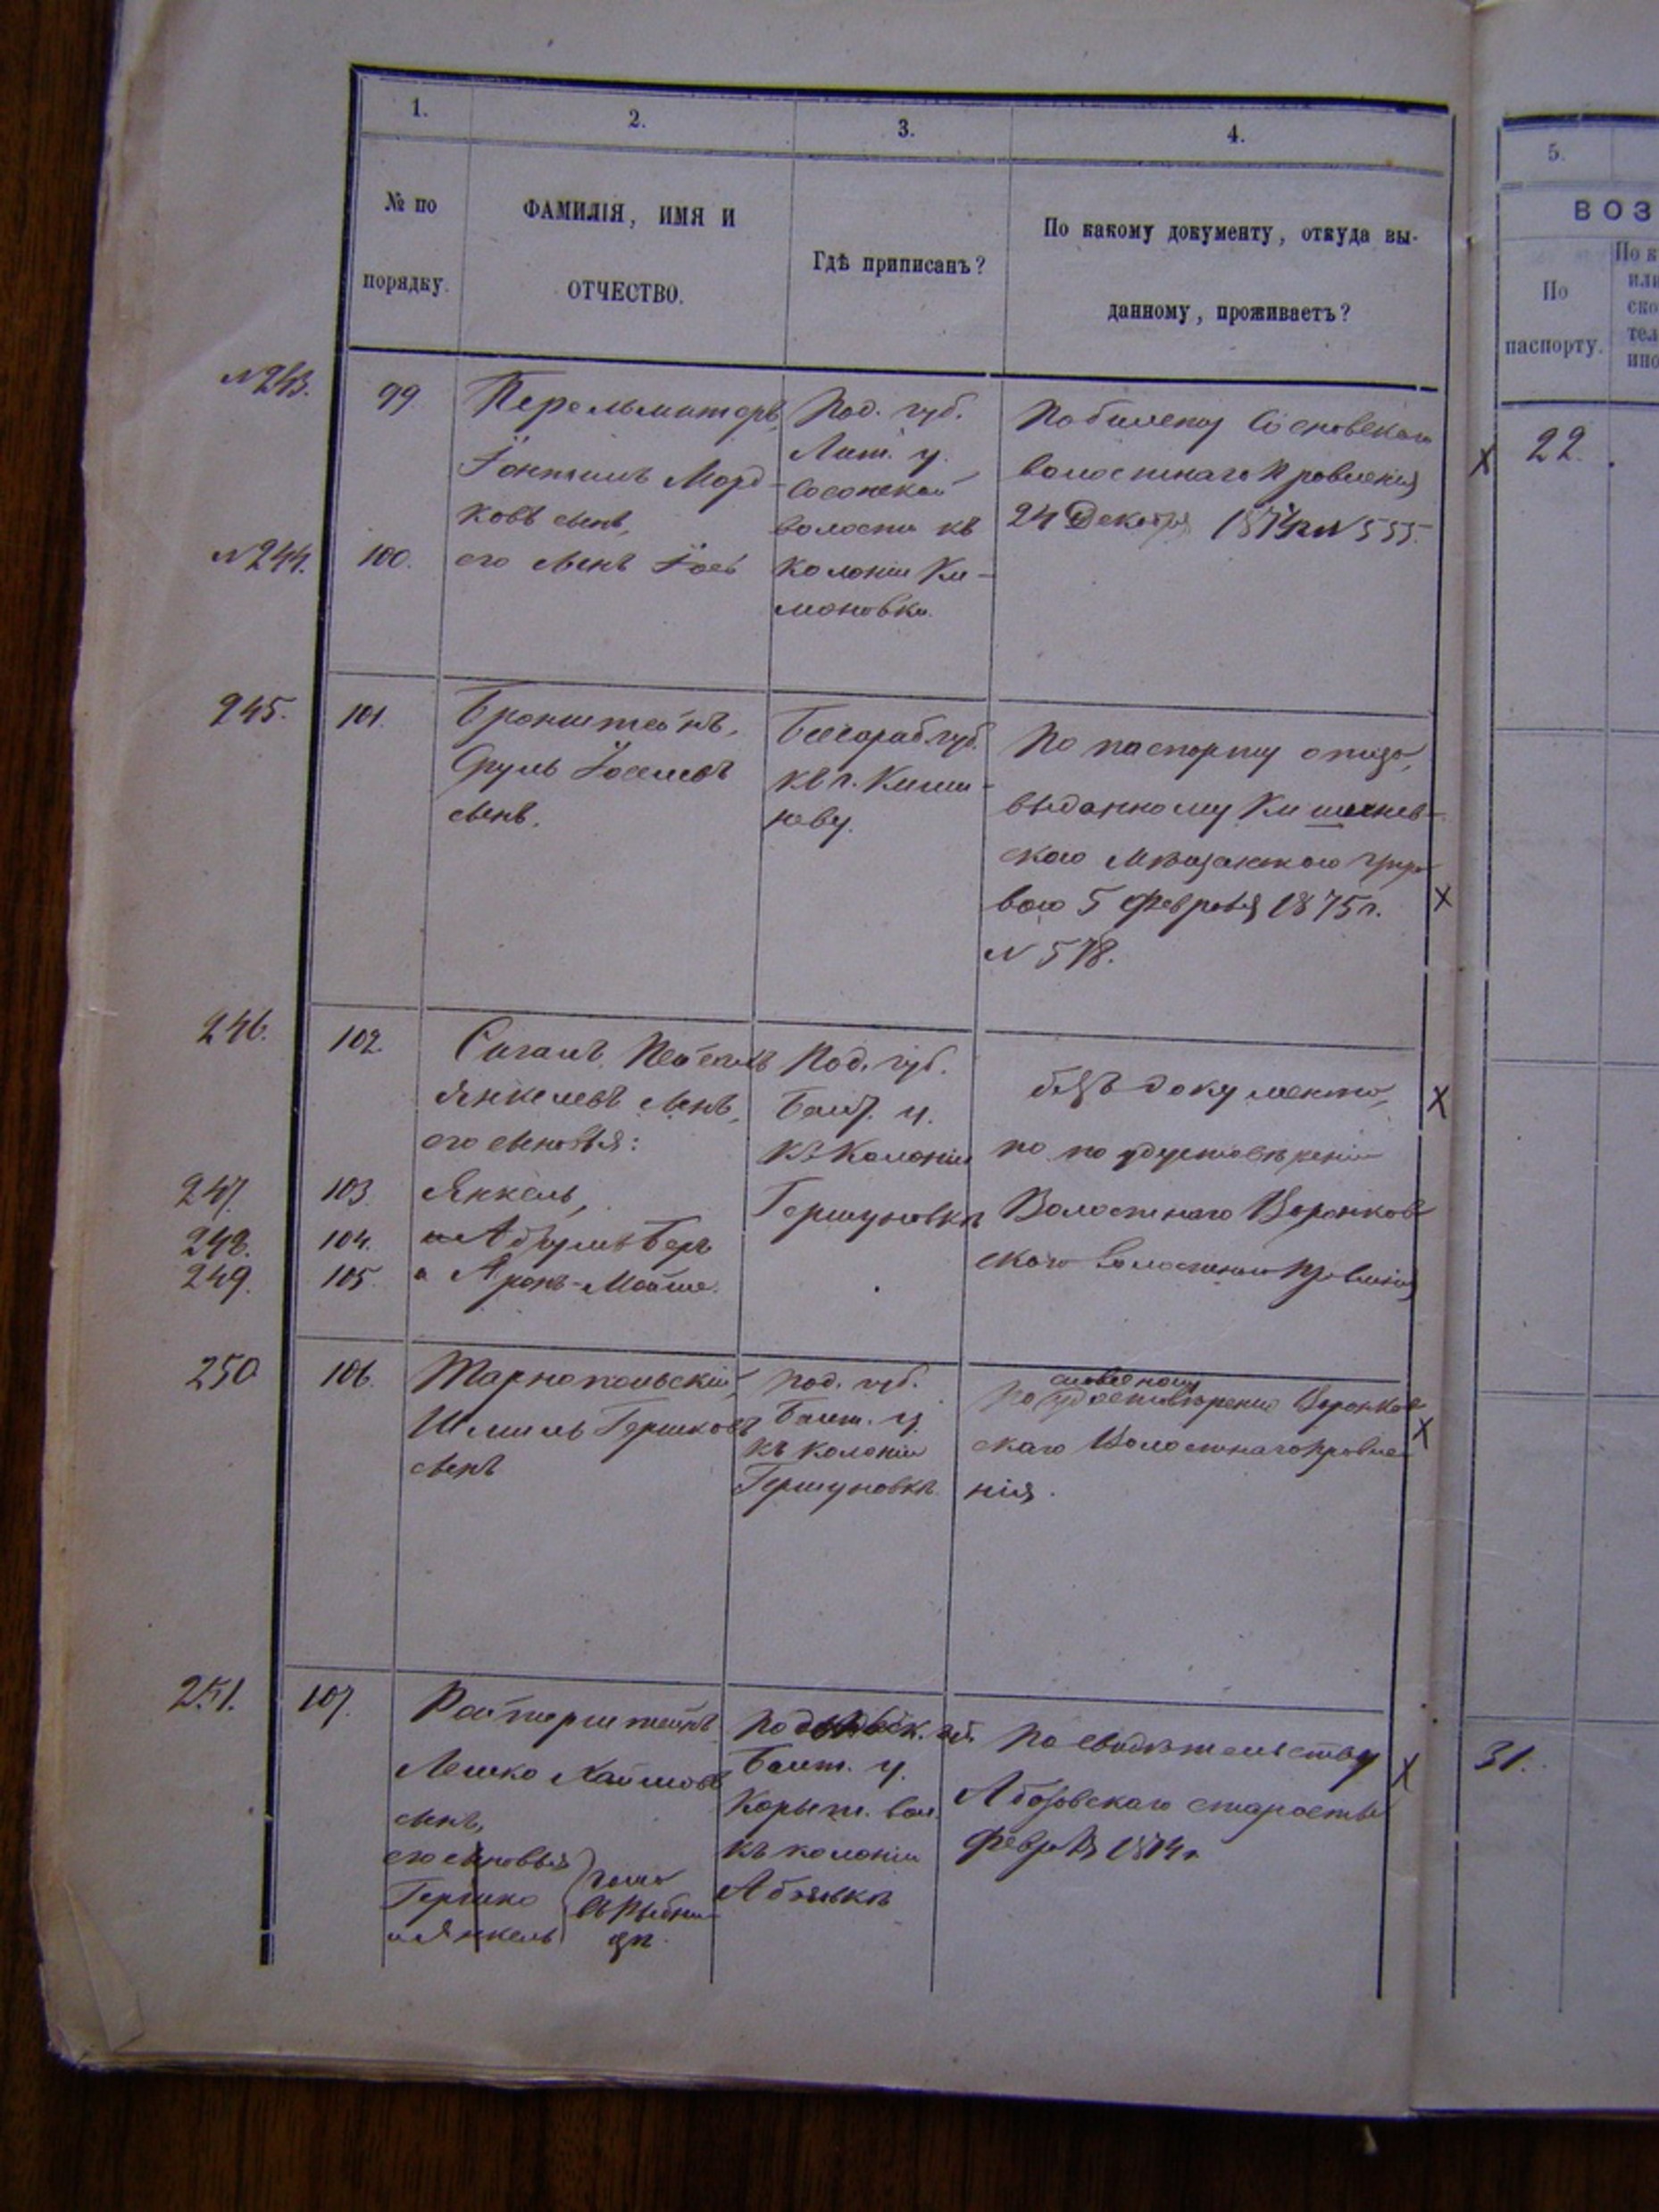 1. 2. 3. 4. 5.
№ по порядку.
ФАМИЛІЯ, ИМЯ И
ОТЧЕСТВО.
Гдѣ приписанъ?
По какому документу, откуда вы-
данному, проживаетъ?
ВОЗ
По
паспорту.
По к
или
ско
тел
ино
N 243. 99.
Перельмитеръ,
Морд-
ковъ сынъ,
Под. губ.
волости къ
Колоніи Ки-
моновки.
По билету
волостнаго Правленія
24 Декабря 1874 г. N 555.
X 22.
N 244. 100. его сынъ
245. 101. Бронштейнъ,
Сруль Іоселевъ
сынъ.
Бессараб. губ.
къ г. Киши-
неву.
По паспорту
выданному Кишинев-
скаго Мѣщанскаго
5 Февраля 1875 г.
N 578.
X
246. 102. Сигалъ
Янкелевъ сынъ,
его сыновья:
Под. губ.
Балт. у.
къ Колоніи
Гершуновкѣ
безъ документа,
но по удостовѣренію
Волостнаго Воронков-
скаго Волостнаго Правленія
X
247. 103. Янкель,
248. 104. и Абрумъ Беръ
249. 105. и Аронъ-Мойше.
250 106. Тарнопольскій,
Шмиль Гершковъ
сынъ
Под. губ.
Балт. у.
къ колоніи
Гершуновкѣ.
словесному
По удостовѣренію Воронков-
скаго Волостнаго Правле-
нія.
X
251. 107. Ройтерштейнъ
Лешко Хаймовъ
сынъ,
его сыновья
Гершко
и Янкель
въ Рыбни-
цѣ.
губ.
Балт. у.
вол.
къ колоніи
По свидѣтельству
старосты
Февраля 1874 г.
X 31.